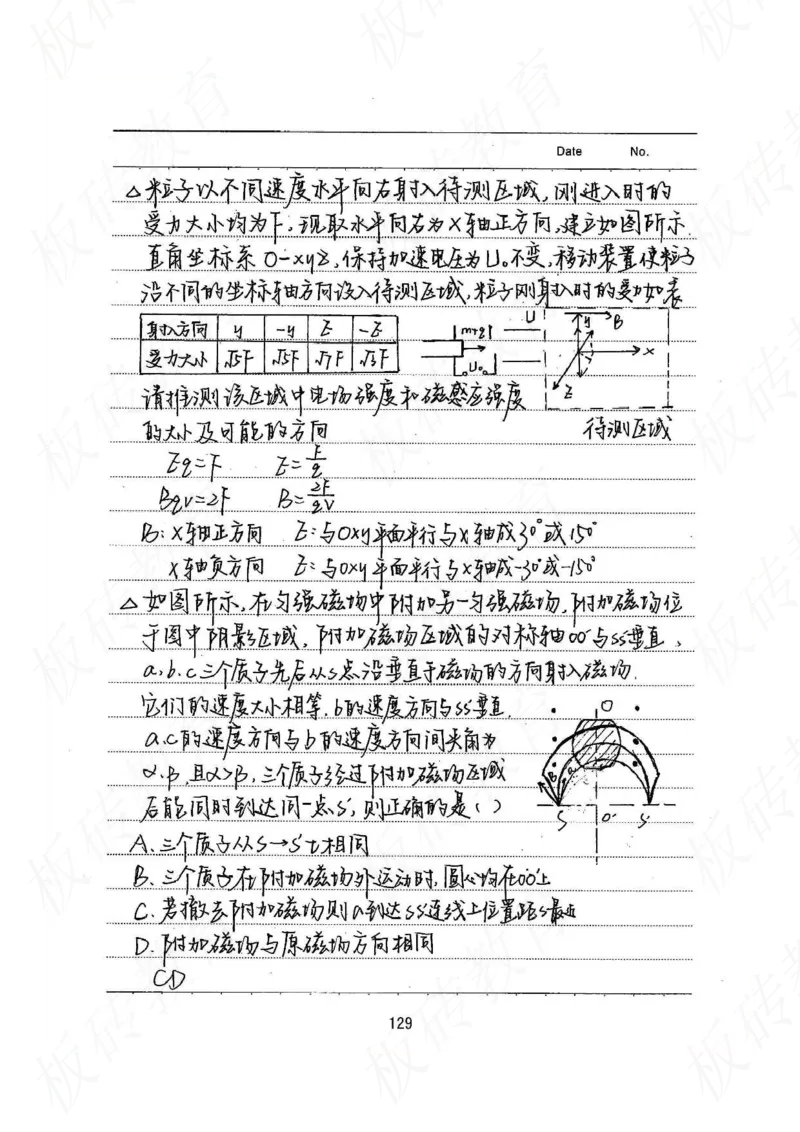 Date No.
△粒子以不同速度水平向右射入待测区域,刚进入时的
受力大小均为F,现取水平向右为x轴正方向,建立如图所示
直角坐标系 O-xyz,保持加速电压为U₀不变,移动装置使粒子
沿不同的坐标轴方向设入待测区域,粒子刚射入时的受力如表
射入方向 y -y z -z
受力大小 √5F √5F √7F √3F
m+q U U₀
y B x z
请推测该区域中电场强度和磁感应强度
的大小及可能的方向 待测区域
Eq=F E=F/q
Bqv=2F B=2F/qv
B:x轴正方向 E:与Oxy平面平行与x轴成30°或150°
x轴负方向 E:与Oxy平面平行与x轴成-30°或-150°
△如图所示,在匀强磁场中附加另一匀强磁场,附加磁场位
于图中阴影区域,附加磁场区域的对称轴OO'与SS'垂直、
a、b、c三个质子先后从S点沿垂直于磁场的方向射入磁场.
它们的速度大小相等,b的速度方向与SS'垂直,
a.c的速度方向与b的速度方向间夹角为
α、β,且α>β,三个质子经过附加磁场区域
后能同时到达同一点S',则正确的是( )
O β α S O' S'
A、三个质子从S→S't相同
B、三个质子在附加磁场外运动时,圆心均在OO'上
C、若撤去附加磁场则a到达SS'连线上位置距S最近
D、附加磁场与原磁场方向相同
CD
129
板砖教育